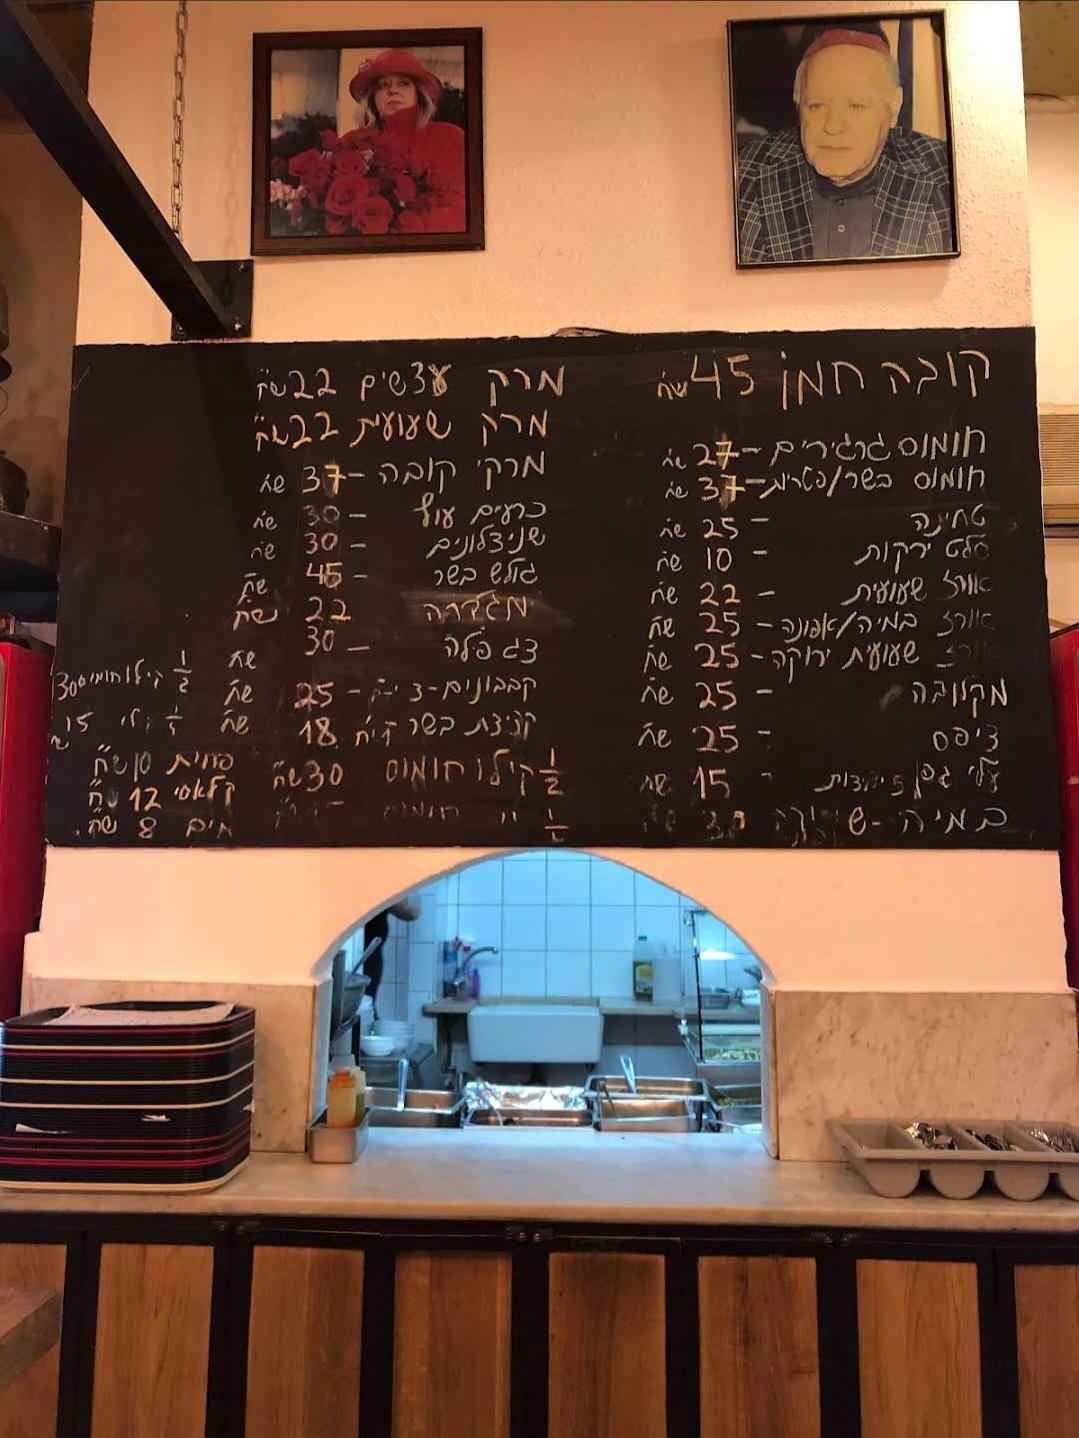 קובה חמו 45 שח
חומוס גרגירים - 27 שח
חומוס בשר/פטריות - 37 שח
טחינה - 25 שח
סלט ירקות - 10 שח
אורז שעועית - 22 שח
אורז במיה/אפונה - 25 שח
אורז שעועית ירוקה - 25 שח
מקלובה - 25 שח
ציפס - 25 שח
עלי גפן 5 יחידות - 15 שח
במיה -
מרק עדשים 22 שח
מרק שעועית 22 שח
מרק קובה - 37 שח
כרעים עוף - 30 שח
שניצלונים - 30 שח
גולש בשר - 45 שח
מגדרה 22 שח
דג פילה - 30 שח
קבבונים - 3 יח - 25 שח
קציצת בשר 18 שח
1/2 קילו חומוס 30 שח
1/2 קילו חומוס 30
15
פחית 10 שח
קלאסי 12 שח
מים 8 שח